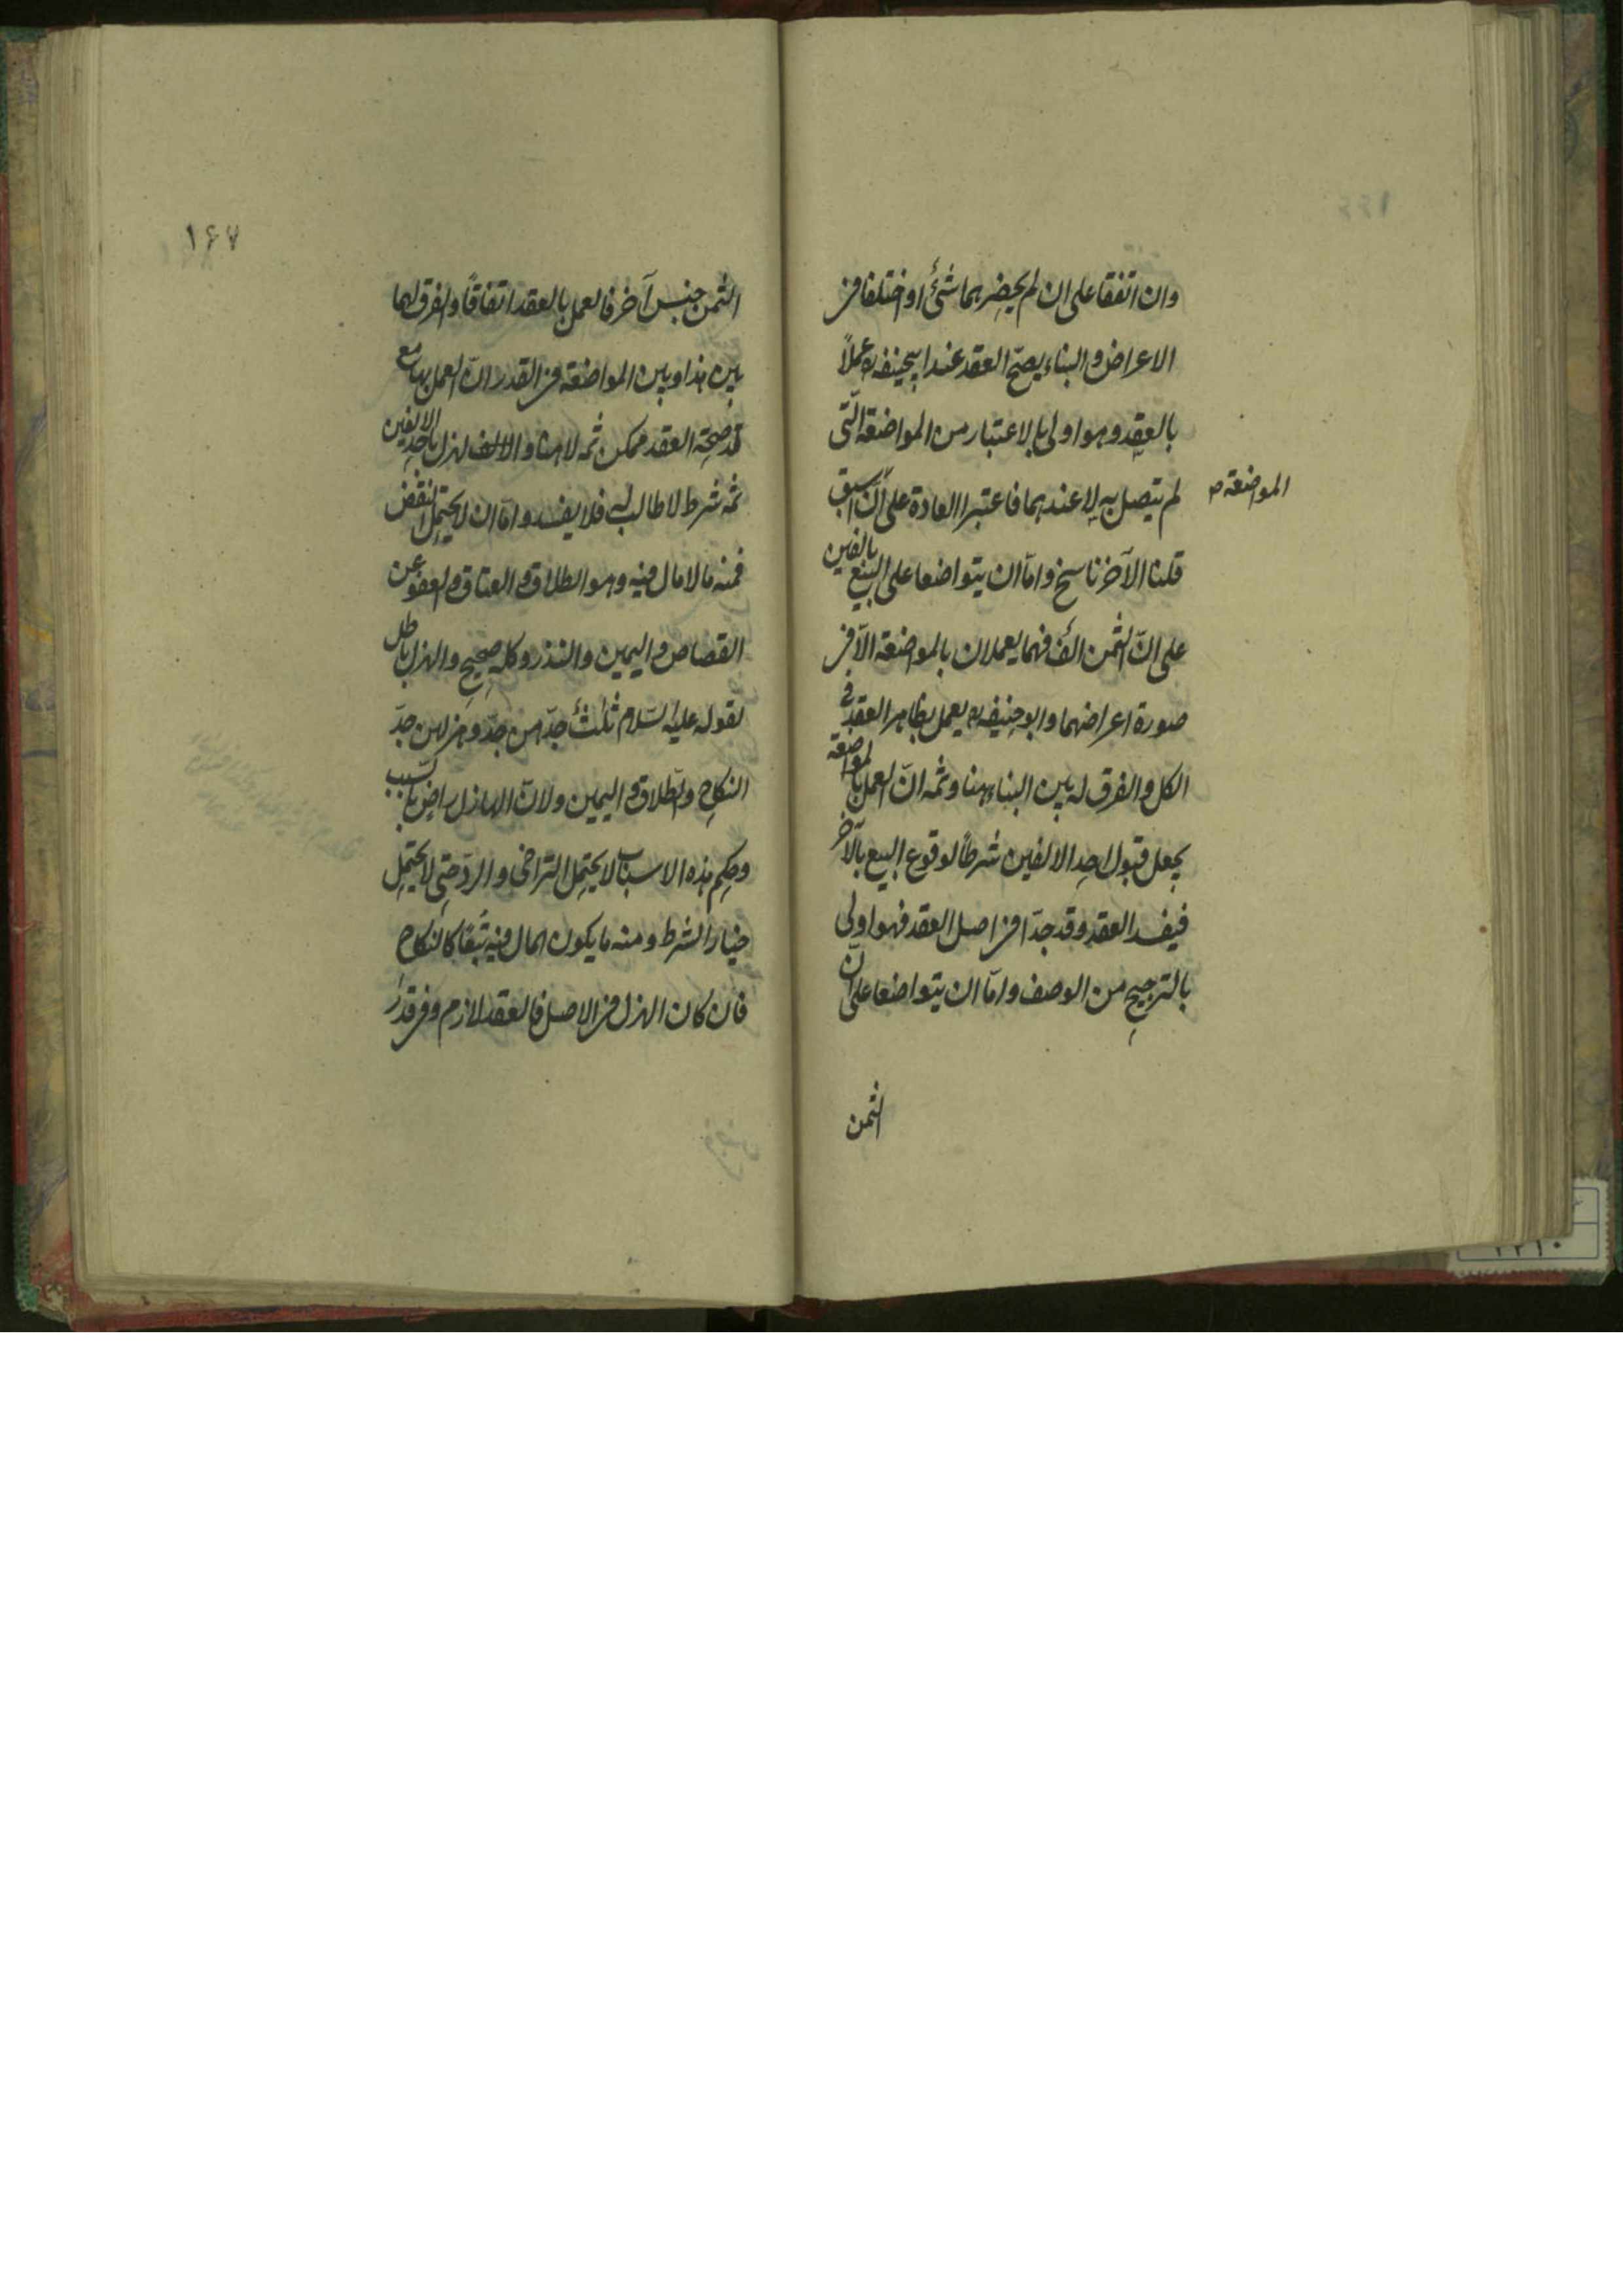 وان اتفقا على ان لم يحضرهما شئ او اختلفا فى
الاعراض والبناء يصح العقد عند ابيحنيفه ره عملاً
بالعقد وهو اولى بالاعتبار من المواضعة التى
لم يتصل به لا عندهما فاعتبرا العادة على ان اسبق
المواضعة
قلنا الآخر ناسخ واما ان يتواضعا على البيع بالفين
على ان الثمن الف فهما يعملان بالمواضعة الا فى
صورة اعراضهما وابو حنيفه ره يعمل بظاهر العقد فى
الكل والفرق له بين البناء هنا وثمه ان العمل بالمواضعة
يجعل قبول احد الالفين شرطاً لوقوع البيع بالآخر
فيفسد العقد وقد جدّا فى اصل العقد فهو اولى
بالترجيح من الوصف واما ان يتواضعا على ان
الثمن
۱۶۷
الثمن جنس آخر فالعمل بالعقد اتفاقًا والفرق لهما
بين هذا وبين المواضعة فى القدر ان العمل بها مع
صحة العقد ممكن ثمه لا هنا والالف لهزل باحد الالفين
ثمه شرط لا طالب له فلا يفسد واما ان لا يحتمل النقض
فمنه ما لا مال فيه وهو الطلاق والعتاق والعفو عن
القصاص واليمين والنذر وكله صحيح والهزل باطل
لقوله عليه السلام ثلث جدهن جدّ وهزلهن جدّ
النكاح والطلاق واليمين ولان الهازل راض بالسبب
وحكم هذه الاسباب لا يحتمل التراخى والرد حتى لا يحتمل
خيار الشرط ومنه ما يكون المال فيه تبعًا كالنكاح
فان كان الهزل فى الاصل فالعقد لازم وفى قدر